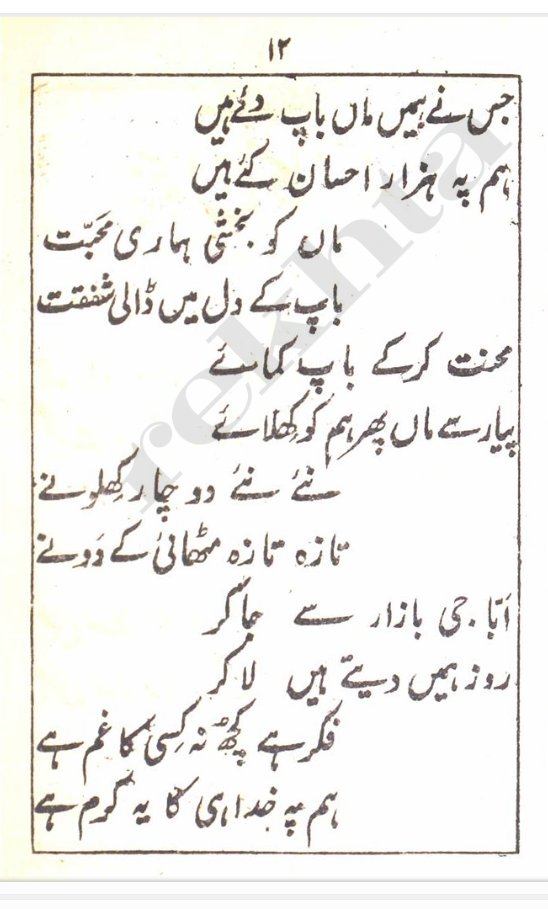 ۱۲
جس نے ہمیں ماں باپ دئے ہیں
ہم پہ ہزار احسان کئے ہیں
ماں کو بخشی ہماری محبّت
باپ کے دل میں ڈالی شفقت
محنت کرکے باپ کمائے
پیار سے ماں پھر ہم کو کھِلائے
نئے نئے دو چار کھِلونے
تازہ تازہ مٹھائی کے دَونے
اَبّا جی بازار سے جاکر
روز ہمیں دیتے ہیں لاکر
فکر ہے کچھ نہ کِسی کا غم ہے
ہم پہ خدا ہی کا یہ کرم ہے
rekhta